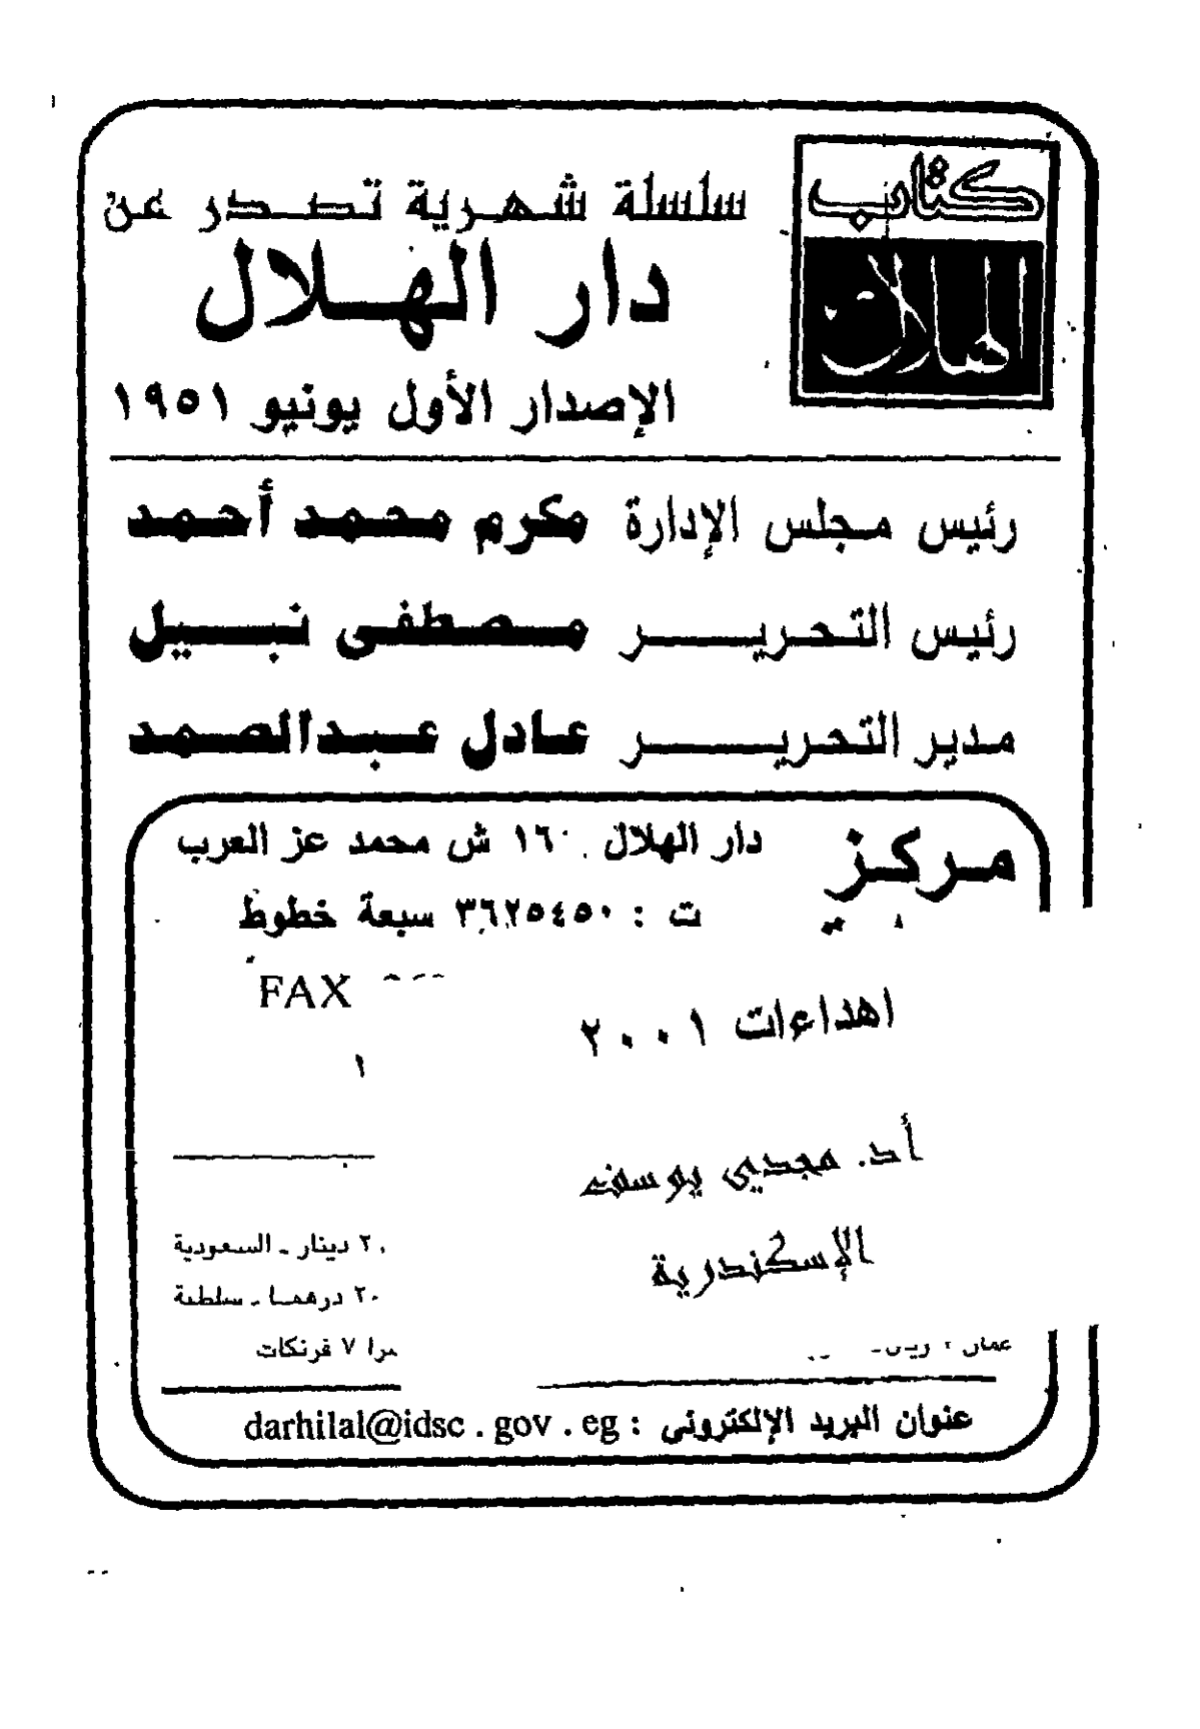 كتاب
الهلال
سلسلة شهرية تصدر عن
دار الهلال
الإصدار الأول يونيو ١٩٥١
رئيس مجلس الإدارة مكرم محمد أحمد
رئيس التحرير مصطفى نبيل
مدير التحرير عادل عبدالصمد
مركز
دار الهلال ١٦ ش محمد عز العرب
ت : ٣٦٢٥٤٥٠ سبعة خطوط
FAX
اهداءات ٢٠٠١
أ.د. مجدي يوسف
الإسكندرية
٢٠ دينار ـ السعودية
٢٠ درهما ـ سلطنة
عمان
٧ فرنكات
عنوان البريد الإلكتروني : darhilal@idsc . gov . eg